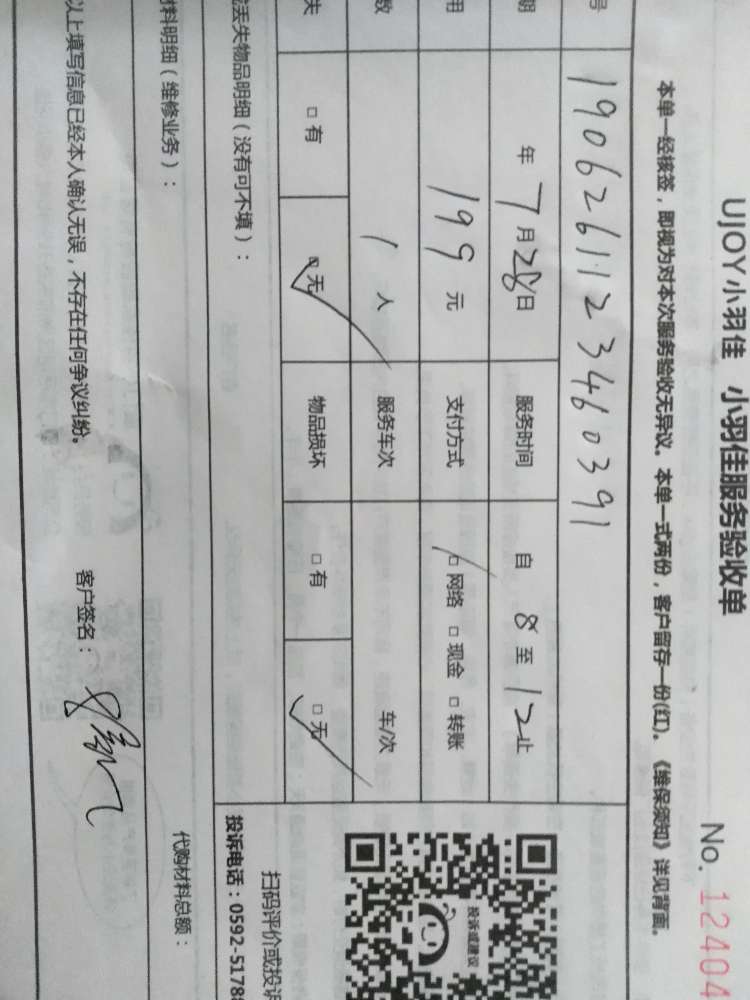 UJOY小羽佳 小羽佳服务验收单
No. 12404
本单一经核签，即视为对本次服务验收无异议。本单一式两份，客户留存一份(红)。《维保须知》详见背面。
号 19062611123460391
期 年 7月28日 服务时间 自 8 至 12 止
用 199 元 支付方式 □网络 □现金 □转账
数 1 人 服务车次 车/次
失 □有 □无 物品损坏 □有 □无
投诉或建议
扫码评价或投诉
丢失物品明细（没有可不填）：
投诉电话：0592-5178
料明细（维修业务）：
代购材料总额：
以上填写信息已经本人确认无误，不存在任何争议纠纷。 客户签名：